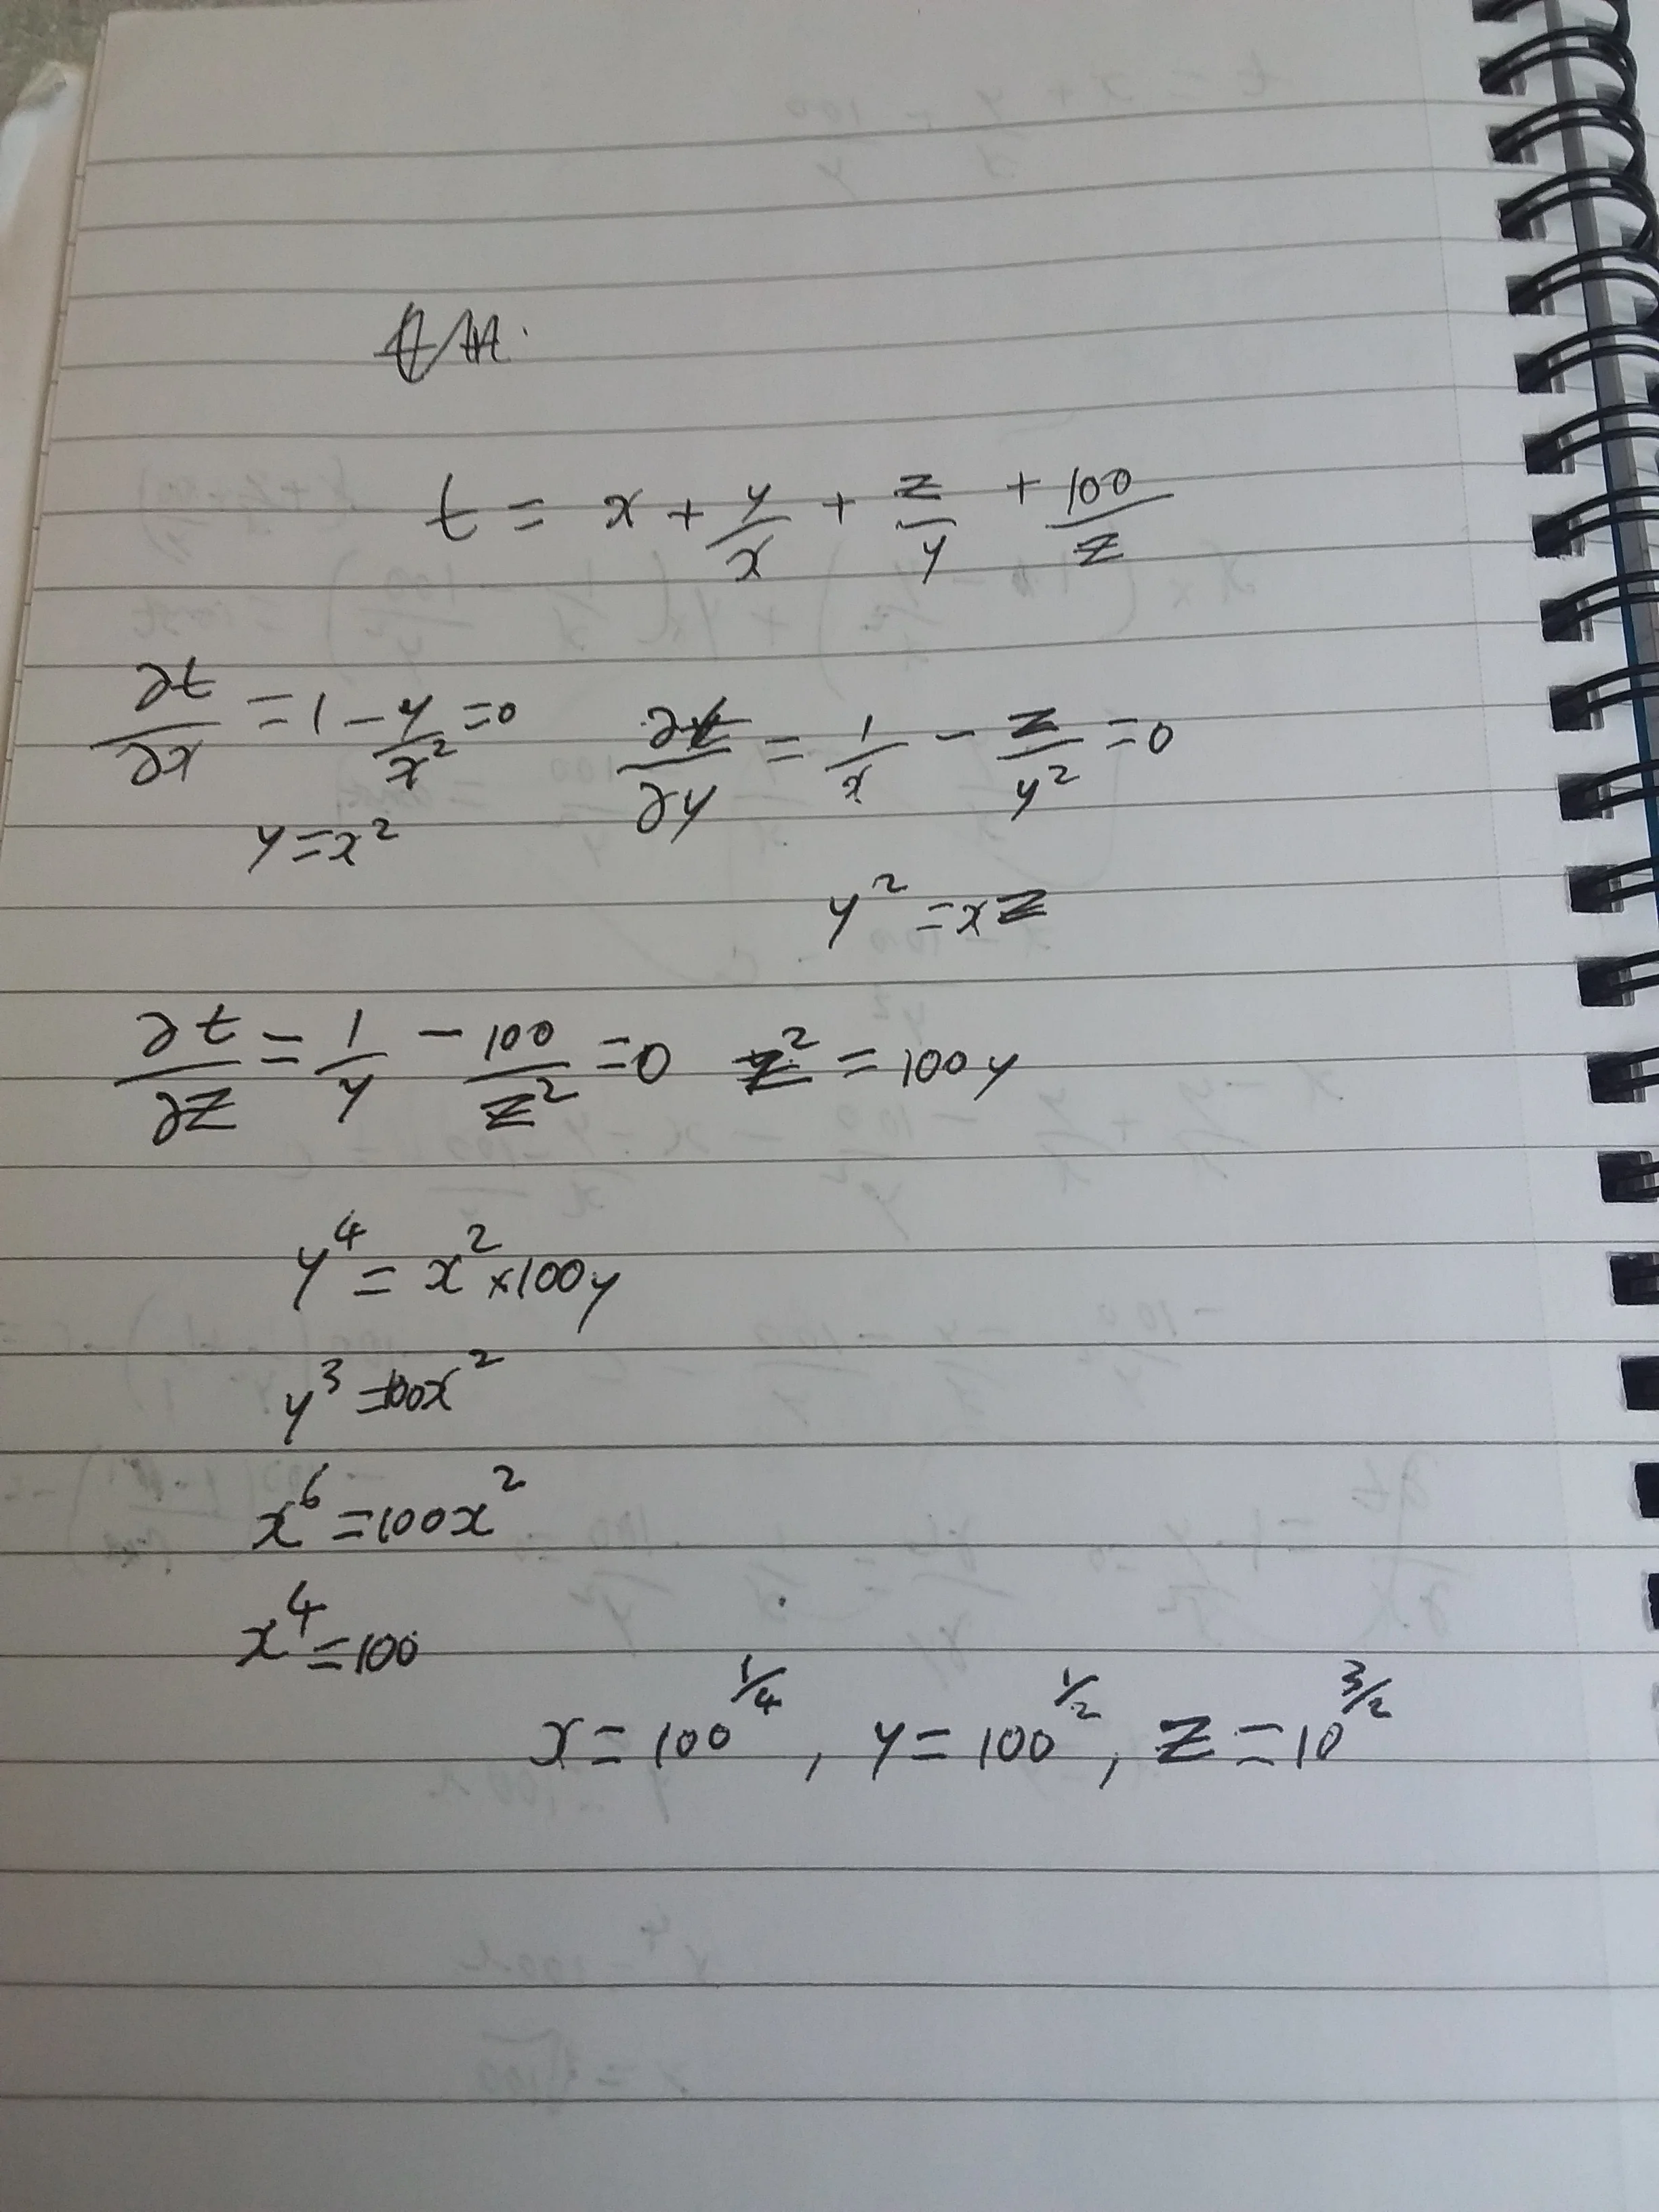 t = x + y/x + z/y + 100/z
∂t/∂x = 1 - y/x² = 0    ∂t/∂y = 1/x - z/y² = 0
y = x²
y² = xz
∂t/∂z = 1/y - 100/z² = 0    z² = 100y
y⁴ = x² × 100y
y³ = 100x²
x⁶ = 100x²
x⁴ = 100
x = 100^1/4, y = 100^1/2, z = 10^3/2